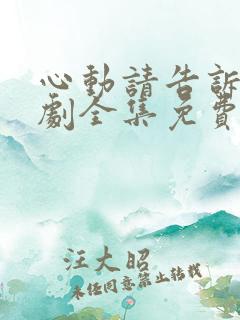 心動請告訴
劇全集免費
汪大昭
未經同意禁止轉載